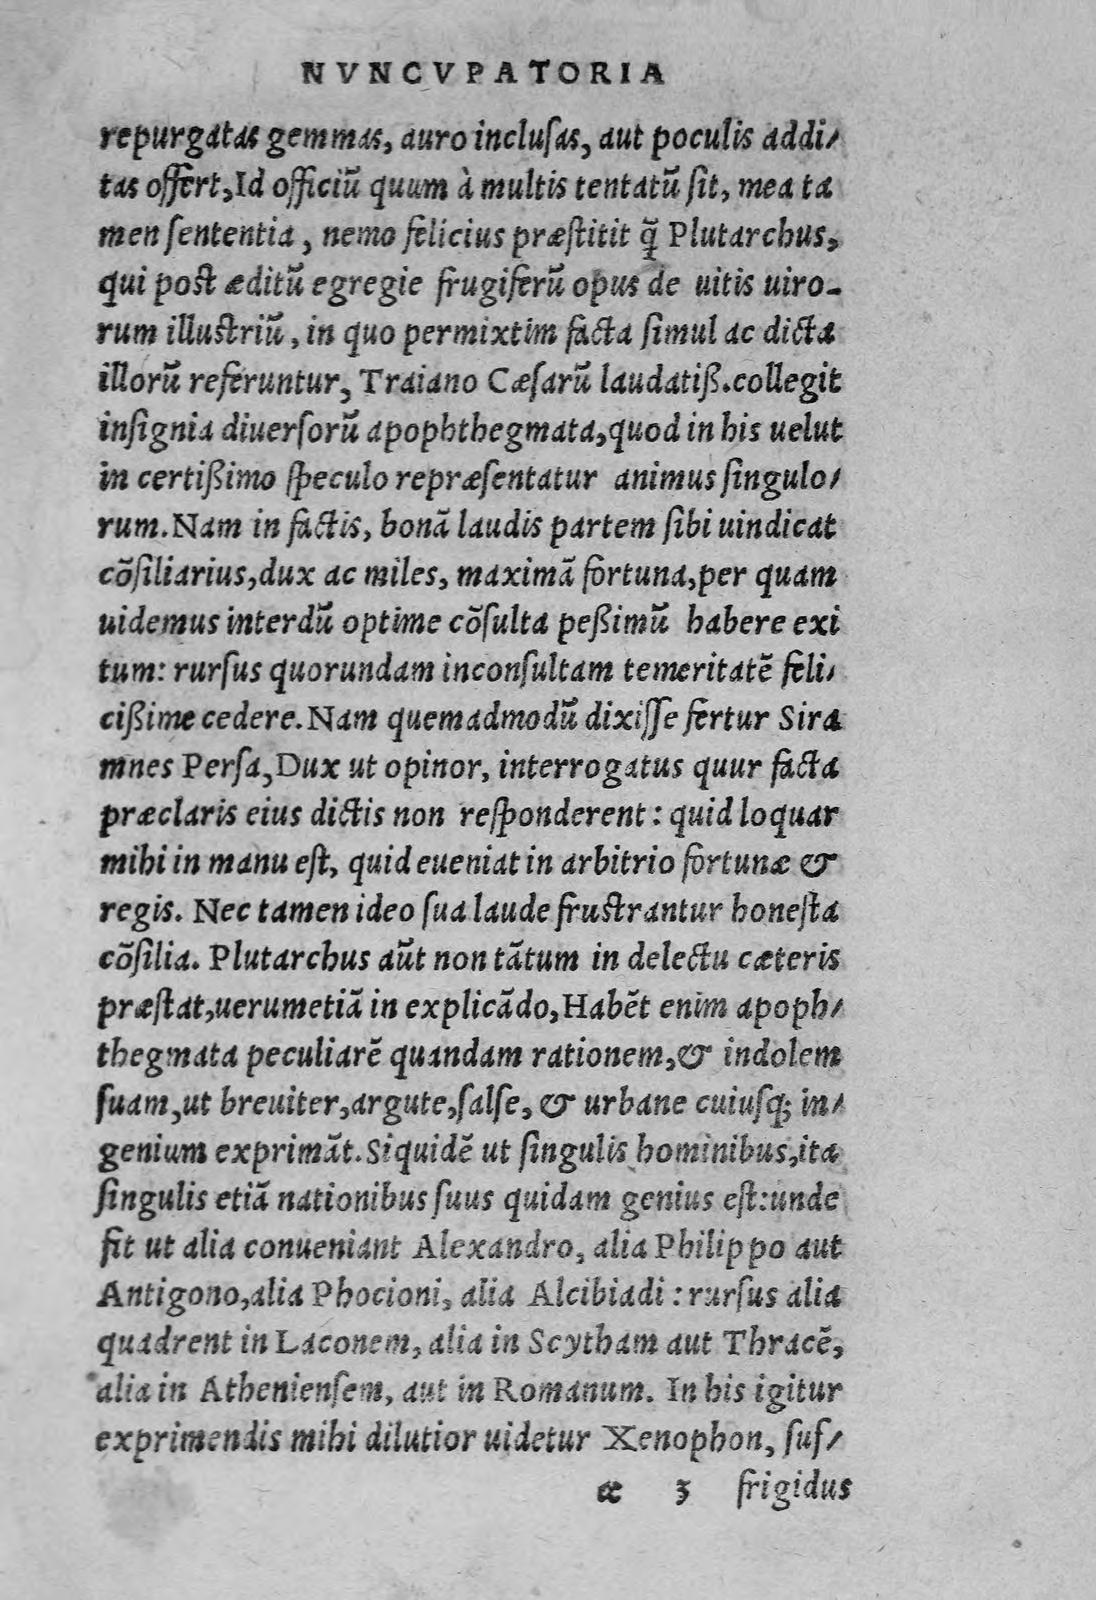 NVNCVPATORIA
repurgatas gemmas, auro incluſas, aut poculis addi/
tas offert, Id officiū quum à multis tentatū ſit, mea ta
men ſententia, nemo felicius præſtitit q̃ Plutarchus,
qui post æditū egregie frugiferū opus de uitis uiro-
rum illustriū, in quo permixtim facta ſimul ac dicta
illorū referuntur, Traiano Cæſarū laudatiß. collegit
inſignia diuerſorū apophthegmata, quod in his uelut
in certißimo ſpeculo repræſentatur animus ſingulo/
rum. Nam in factis, bonā laudis partem ſibi uindicat
cōſiliarius, dux ac miles, maximā fortuna, per quam
uidemus interdū optime cōſulta peßimū habere exi
tum: rurſus quorundam inconſultam temeritatē feli/
cißime cedere. Nam quemadmodū dixiſſe fertur Sira
mnes Perſa, Dux ut opinor, interrogatus quur facta
præclaris eius dictis non reſponderent: quid loquar
mihi in manu eſt, quid eueniat in arbitrio fortunæ &
regis. Nec tamen ideo ſua laude frustrantur honeſta
cōſilia. Plutarchus aūt non tātum in delectu cæteris
præſtat, uerumetiā in explicādo, Habēt enim apoph/
thegmata peculiarē quandam rationem, & indolem
ſuam, ut breuiter, argute, ſalſe, & urbane cuiuſq; in/
genium exprimāt. Siquidē ut ſingulis hominibus, ita
ſingulis etiā nationibus ſuus quidam genius eſt: unde
fit ut alia conueniant Alexandro, alia Philippo aut
Antigono, alia Phocioni, alia Alcibiadi: rurſus alia
quadrent in Laconem, alia in Scytham aut Thracē,
alia in Athenienſem, aut in Romanum. In his igitur
exprimendis mihi dilutior uidetur Xenophon, ſuf/
æ 3 frigidus